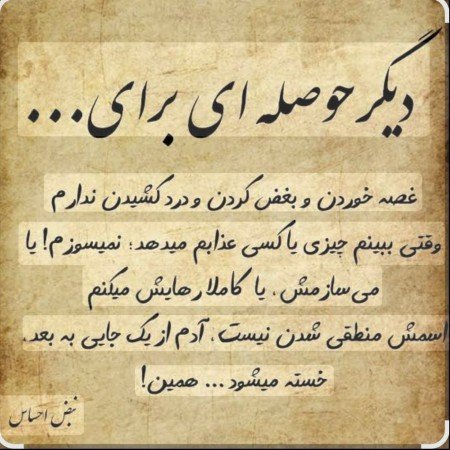 دیگر حوصله ای برای...
غصه خوردن و بغض کردن و درد کشیدن ندارم
وقتی ببینم چیزی یا کسی عذابم میدهد؛ نمیسوزم! یا
می سازمش، یا کاملا رهایش میکنم
اسمش منطقی شدن نیست، آدم از یک جایی به بعد،
خسته میشود... همین!
نبض احساس